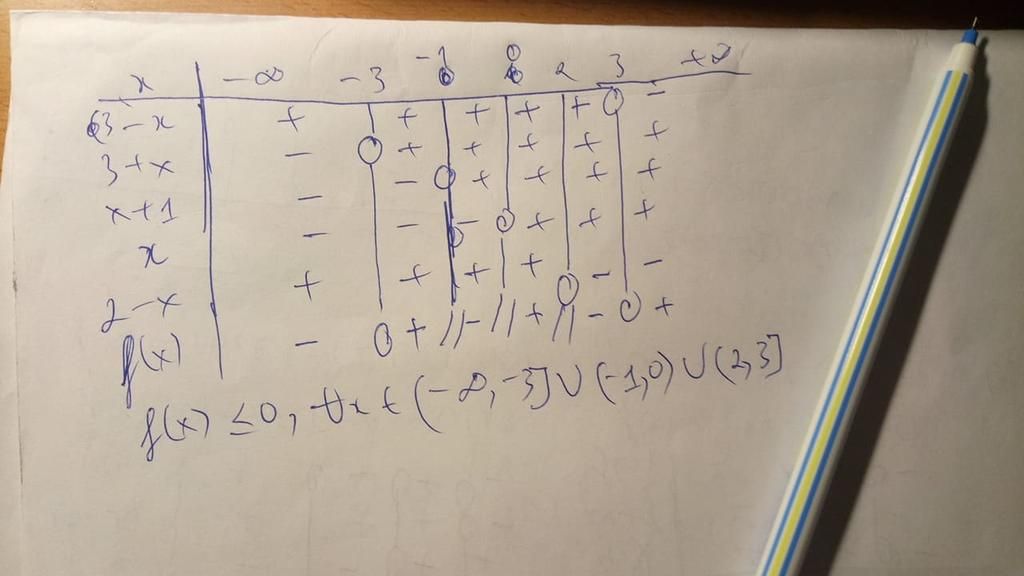 x -∞ -3 -1 0 2 3 +∞
3-x + + + + + 0 -
3+x - 0 + + + + +
x+1 - - 0 + + + +
x - - - 0 + + +
2-x + + + + 0 - -
f(x) - 0 + || - || + || - 0 +
f(x) ≤ 0, ∀x ∈ (-∞, -3] ∪ (-1, 0) ∪ (2, 3]